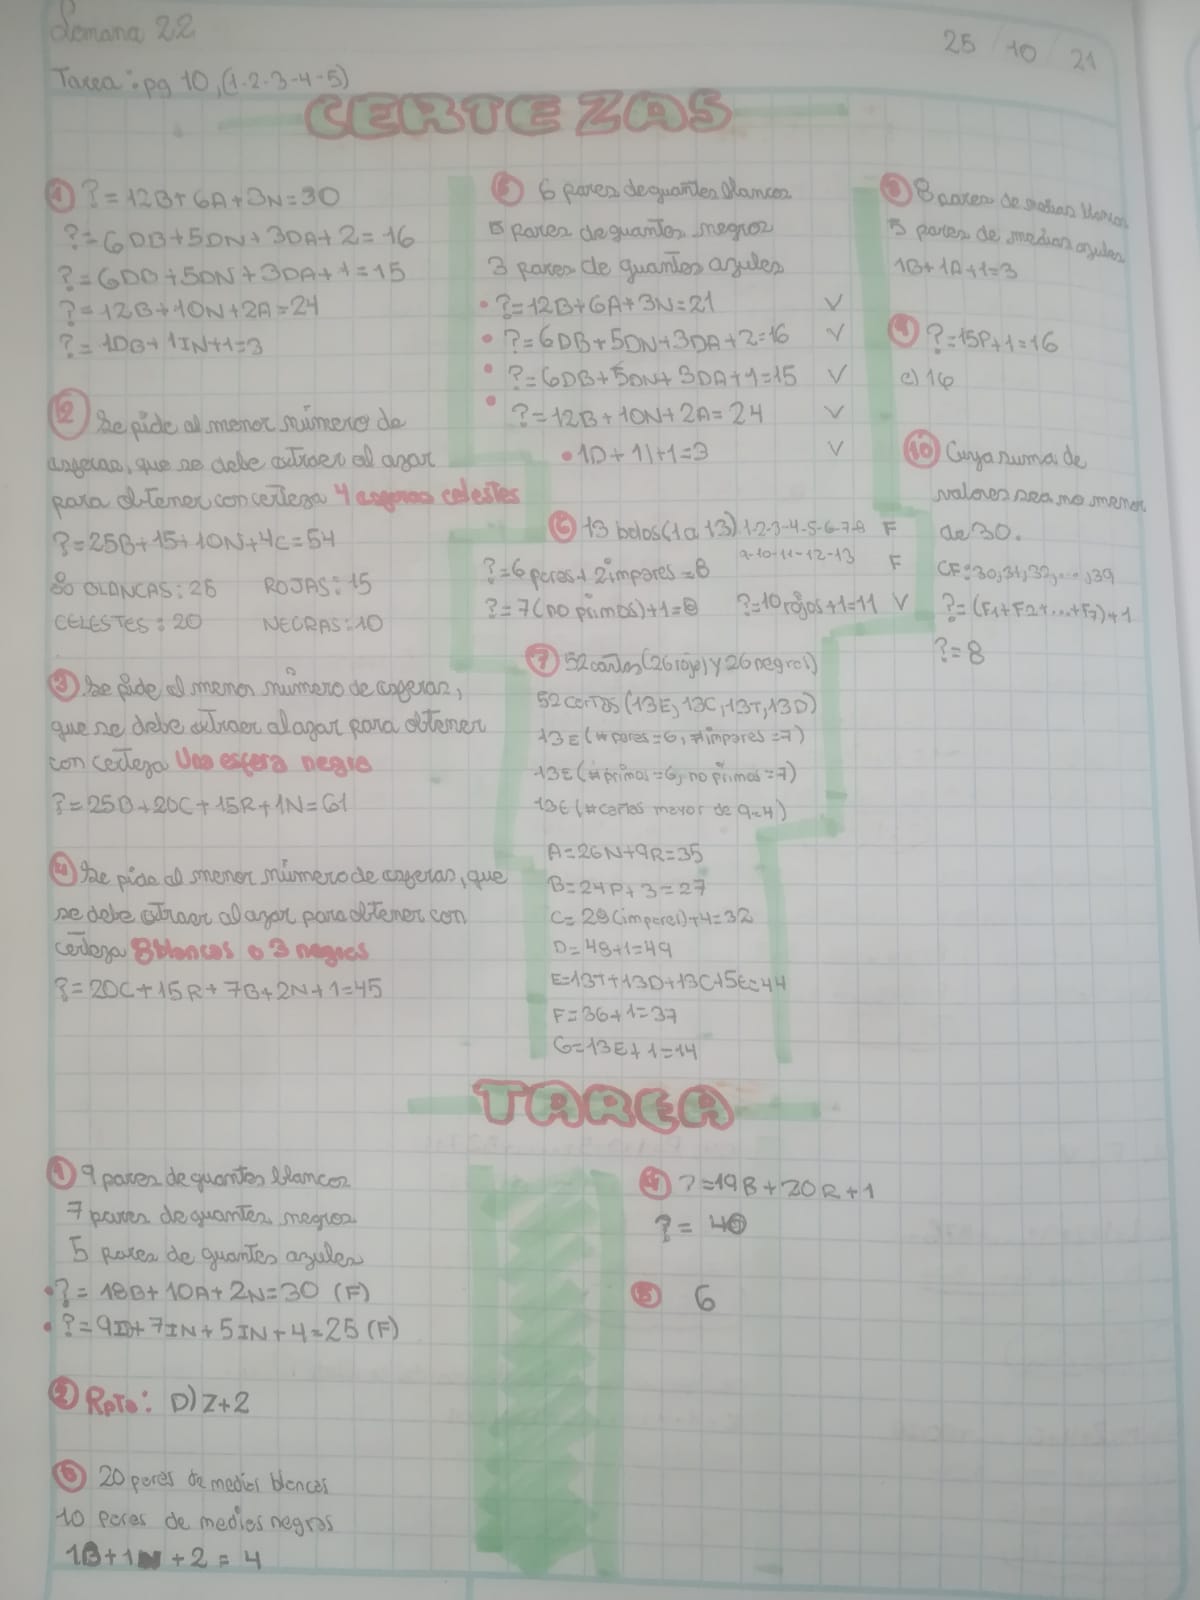 Semana 22
25 / 10 / 21
Tarea: pg 10, (1-2-3-4-5)
CERTEZAS
1 ?=12B+6A+3N=30
?=6DB+5DN+3DA+2=16
?=6DD+5DN+3DA+1=15
?=12B+10N+2A=24
?=1DB+1IN+1=3
2 Se pide al menor número de
esferas, que se debe extraer al azar
para obtener con certeza 4 esferas celestes
?=25B+15+10N+4C=54
80 BLANCAS: 25 ROJAS: 15
CELESTES: 20 NEGRAS: 10
3 Se pide al menor número de esferas,
que se debe extraer al azar para obtener
con certeza Una esfera negra
?=25B+20C+15R+1N=61
4 Se pide al menor número de esferas, que
se debe extraer al azar para obtener con
certeza 8 blancas o 3 negras
?=20C+15R+7B+2N+1=45
5 6 pares de guantes blancos
5 pares de guantes negros
3 pares de guantes azules
?=12B+6A+3N=21 V
?=6DB+5DN+3DA+2=16 V
?=6DB+5DN+3DA+1=15 V
?=12B+10N+2A=24 V
1D+1I+1=3 V
6 13 bolos (1 a 13) 1-2-3-4-5-6-7-8 F
9-10-11-12-13 F
?=6 pares+2 impares=8
?=7(no primos)+1=8 ?=10 rojos+1=11 V
7 52 cartas (26 rojas y 26 negras)
52 cartas (13E, 13C, 13T, 13D)
13E (# pares=6, #impares=7)
13E (#primos=6, no primos=7)
13E (#cartas mayor de 9=4)
A=26N+9R=35
B=24P+3=27
C=28(impares)+4=32
D=48+1=49
E=13T+13D+13C+5E=44
F=36+1=37
G=13E+1=14
8 8 pares de medias blancas
5 pares de medias azules
1B+1A+1=3
9 ?=15P+1=16
c) 16
10 Cuya suma de
valores sea no menor
de 30.
CF: 30, 31, 32, ..., 39
?=(F1+F2+...+F7)+1
?=8
TAREA
1 9 pares de guantes blancos
7 pares de guantes negros
5 pares de guantes azules
?= 18B+10A+2N=30 (F)
?=9ID+7IN+5IN+4=25 (F)
2 Rpta: D) Z+2
3 20 pares de medias blancas
10 pares de medias negras
1B+1N+2=4
4 ?=19B+20R+1
?= 40
5 6